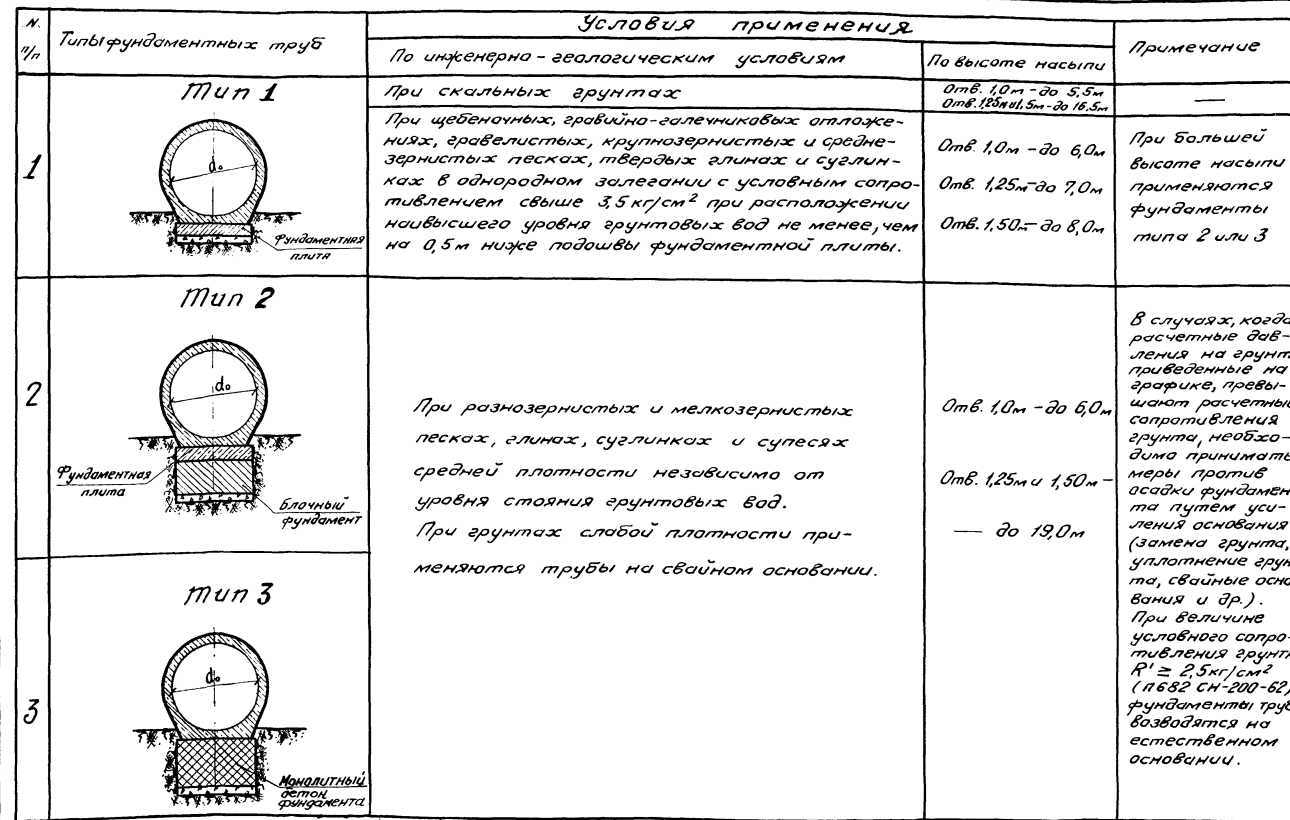 N. п/п
Типы фундаментных труб
Условия применения
По инженерно-геологическим условиям
По высоте насыпи
Примечание
1
Тип 1
dо
Фундаментная
плита
При скальных грунтах
Отв. 1,0м - до 5,5м
Отв. 1,25м и 1,5м - до 16,5м
—
При щебеночных, гравийно-галечниковых отложе-
ниях, гравелистых, крупнозернистых и средне-
зернистых песках, твердых глинах и суглин-
ках в однородном залегании с условным сопро-
тивлением свыше 3,5 кг/см² при расположении
наивысшего уровня грунтовых вод не менее, чем
на 0,5м ниже подошвы фундаментной плиты.
Отв. 1,0м - до 6,0м
Отв. 1,25м - до 7,0м
Отв. 1,50м - до 8,0м
При большей
высоте насыпи
применяются
фундаменты
типа 2 или 3
2
Тип 2
dо
Фундаментная
плита
Блочный
фундамент
3
Тип 3
dо
Монолитный
бетон
фундамента
При разнозернистых и мелкозернистых
песках, глинах, суглинках и супесях
средней плотности независимо от
уровня стояния грунтовых вод.
При грунтах слабой плотности при-
меняются трубы на свайном основании.
Отв. 1,0м - до 6,0м
Отв. 1,25м и 1,50м -
— до 19,0м
В случаях, когда
расчетные дав-
ления на грунт
приведенные на
графике, превы-
шают расчетные
сопротивления
грунта, необхо-
димо принимать
меры против
осадки фундамен
та путем уси-
ления основания
(замена грунта,
уплотнение грун
та, свайные осно
вания и др.).
При величине
условного сопро-
тивления грунта
R' ≥ 2,5кг/см²
(п682 СН-200-62)
фундаменты труб
возводятся на
естественном
основании.